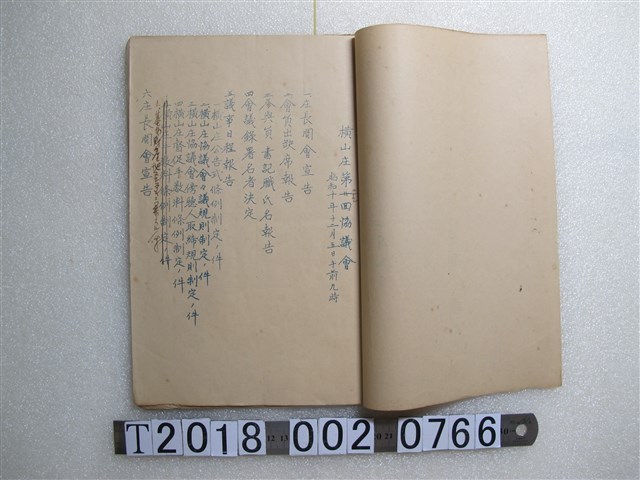 橫山庄第廿四協議會
昭和十年十二月五日午前九時
一 庄長開會宣告
二 會員出欠席報告
三 參與員書記職氏名報告
四 會議錄署名者決定
五 議事日程報告
一 橫山庄公告式條例制定ノ件
二 橫山庄協議會々議規則制定ノ件
三 橫山庄協議會傍聽人取締規則制定ノ件
四 橫山庄督促手數料條例制定ノ件
六 庄長閉會宣告
T2018 002 0766